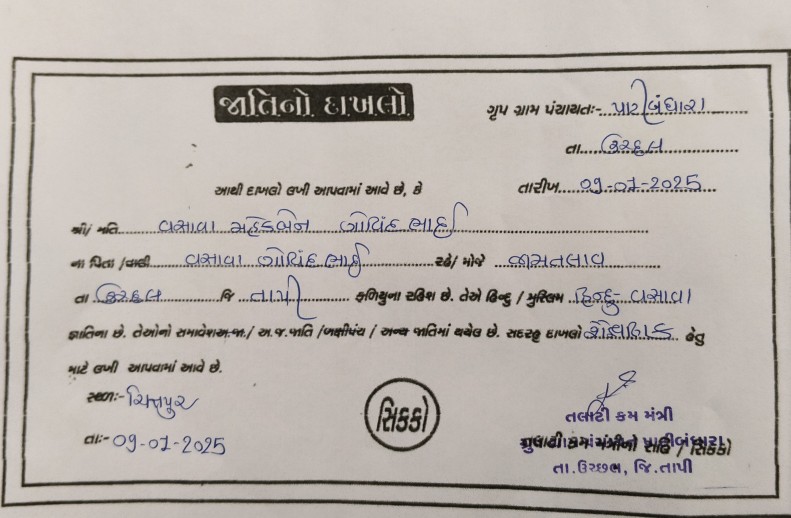 જાતિનો દાખલો
ગૃપ ગ્રામ પંચાયતઃ- પાટીબંધારા
તા. ઉચ્છલ
આથી દાખલો લખી આપવામાં આવે છે, કે તારીખ 09-01-2025
શ્રી/ મતિ વસાવા મહેકબેન ગોવિંદભાઈ
ના પિતા /વાલી વસાવા ગોવિંદભાઈ રહે/ મોજે જામતલાવ
તા ઉચ્છલ જિ તાપી ફળિયુના રહિશ છે. તેઓ હિન્દુ / મુસ્લિમ હિન્દુ- વસાવા
જ્ઞાતિના છે. તેઓનો સમાવેશ અ.જા./ અ.જ.જાતિ /બક્ષીપંચ / અન્ય જાતિમાં થયેલ છે. સદરહુ દાખલો શૈક્ષણિક હેતુ
માટે લખી આપવામાં આવે છે.
સ્થળઃ-
તાઃ- 09-01-2025
સિક્કો
તલાટી કમ મંત્રી
પાટીબંધારા
સહિ / સિક્કો
તા.ઉચ્છલ, જિ.તાપી